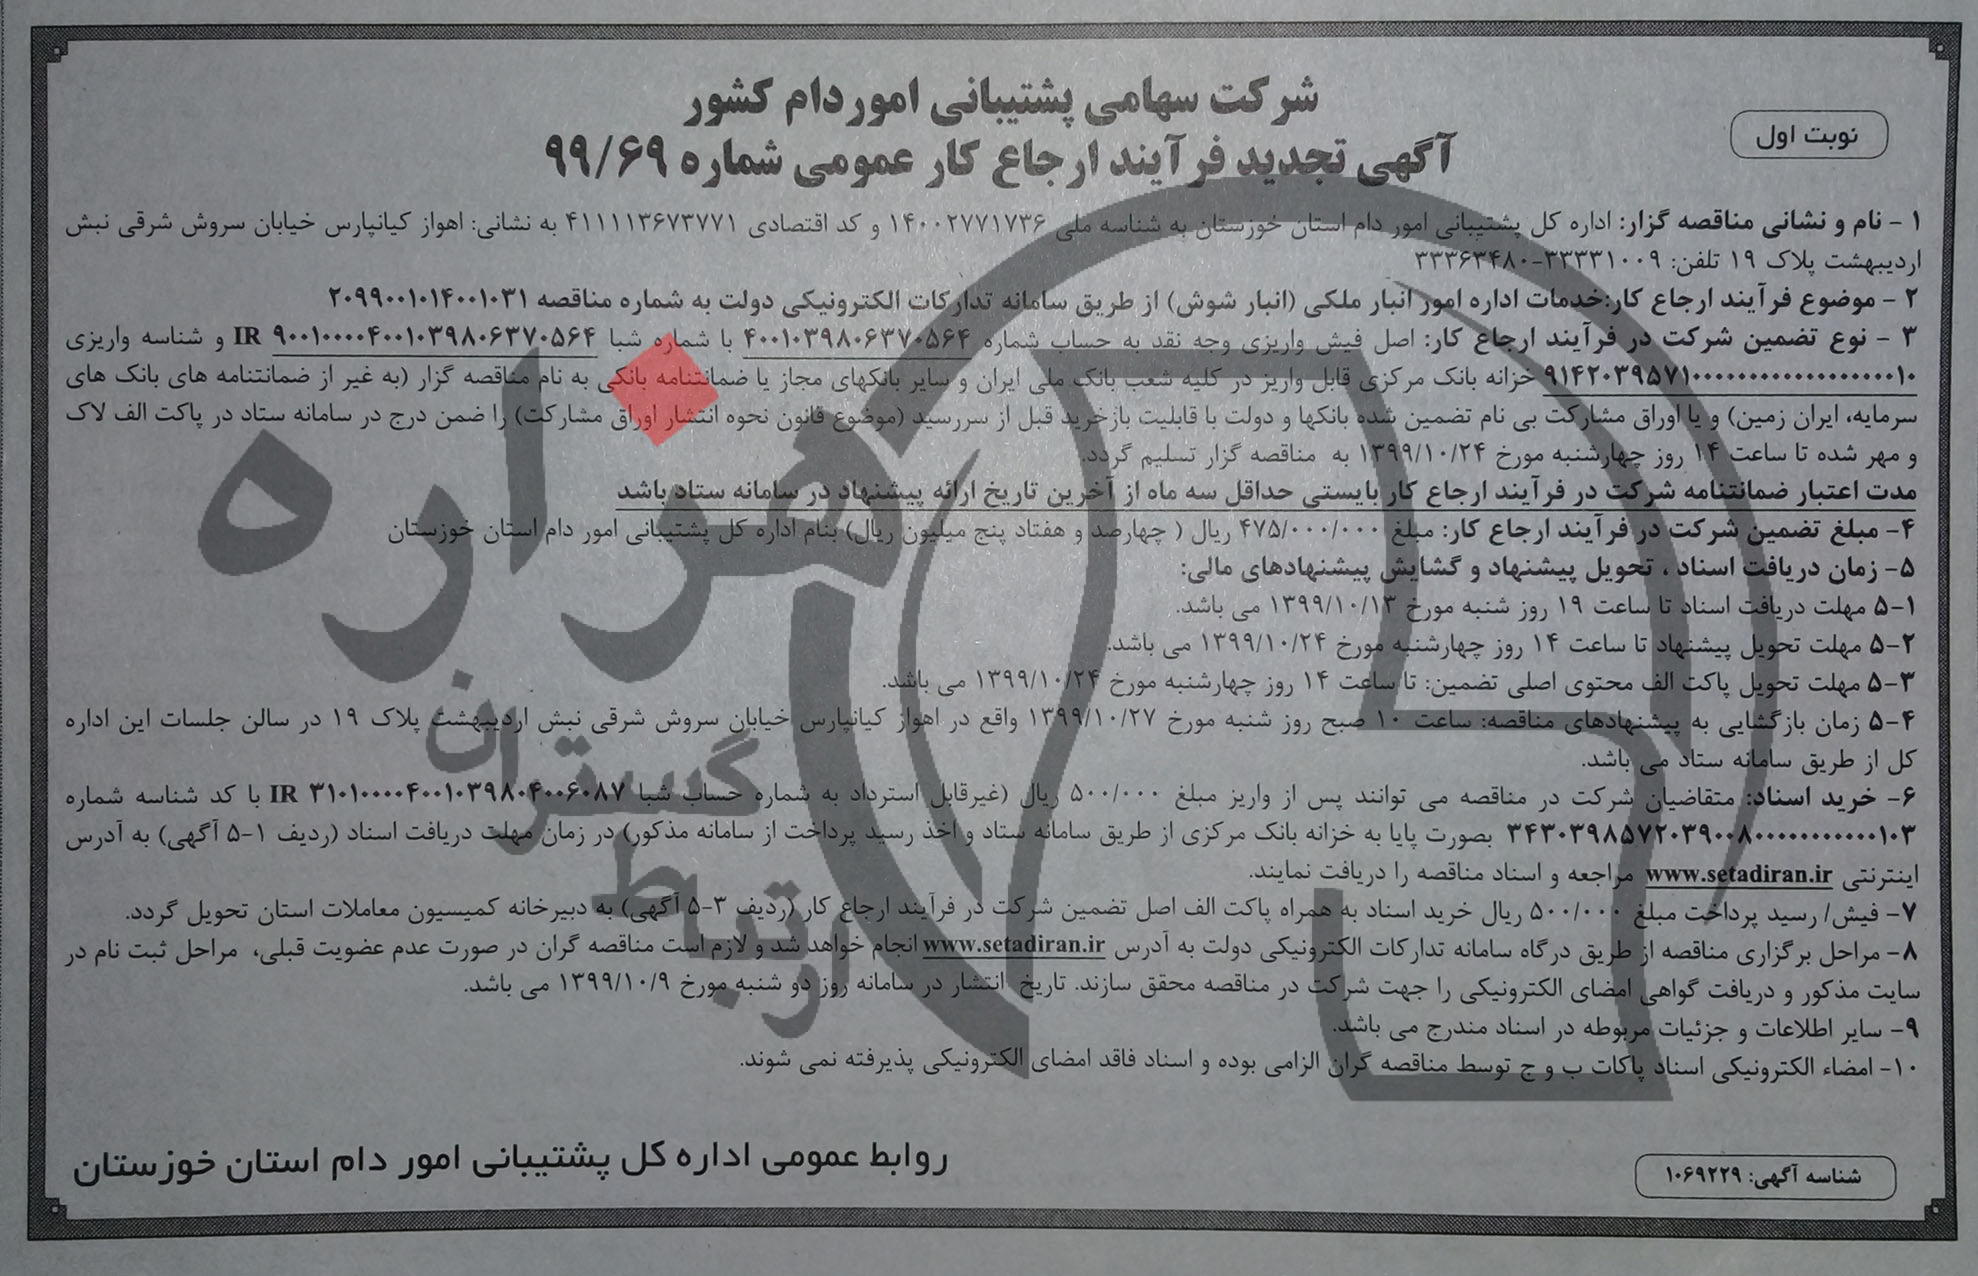 شرکت سهامی پشتیبانی امور دام کشور
نوبت اول
آگهی تجدید فرآیند ارجاع کار عمومی شماره ۹۹/۶۹
۱ - نام و نشانی مناقصه گزار: اداره کل پشتیبانی امور دام استان خوزستان به شناسه ملی ۱۴۰۰۲۷۷۱۷۳۶ و کد اقتصادی ۴۱۱۱۱۳۶۷۳۷۷۱ به نشانی: اهواز کیانپارس خیابان سروش شرقی نبش
اردیبهشت پلاک ۱۹ تلفن: ۳۳۳۳۱۰۰۹-۳۳۳۶۳۴۸۰
۲ - موضوع فرآیند ارجاع کار:خدمات اداره امور انبار ملکی (انبار شوش) از طریق سامانه تدارکات الکترونیکی دولت به شماره مناقصه ۲۰۹۹۰۰۱۰۱۴۰۰۱۰۳۱
۳ - نوع تضمین شرکت در فرآیند ارجاع کار: اصل فیش واریزی وجه نقد به حساب شماره ۴۰۰۱۰۳۹۸۰۶۳۷۰۵۶۴ با شماره شبا IR ۹۰۰۱۰۰۰۰۴۰۰۱۰۳۹۸۰۶۳۷۰۵۶۴ و شناسه واریزی
خزانه بانک مرکزی قابل واریز در کلیه شعب بانک ملی ایران و سایر بانکهای مجاز یا ضمانتنامه بانکی به نام مناقصه گزار (به غیر از ضمانتنامه های بانک های
سرمایه، ایران زمین) و یا اوراق مشارکت بی نام تضمین شده بانکها و دولت با قابلیت بازخرید قبل از سررسید (موضوع قانون نحوه انتشار اوراق مشارکت) را ضمن درج در سامانه ستاد در پاکت الف لاک
و مهر شده تا ساعت ۱۴ روز چهارشنبه مورخ ۱۳۹۹/۱۰/۲۴ به مناقصه گزار تسلیم گردد.
مدت اعتبار ضمانتنامه شرکت در فرآیند ارجاع کار بایستی حداقل سه ماه از آخرین تاریخ ارائه پیشنهاد در سامانه ستاد باشد
۴- مبلغ تضمین شرکت در فرآیند ارجاع کار: مبلغ ۴۷۵/۰۰۰/۰۰۰ ریال ( چهارصد و هفتاد پنج میلیون ریال) بنام اداره کل پشتیبانی امور دام استان خوزستان
۵- زمان دریافت اسناد ، تحویل پیشنهاد و گشایش پیشنهادهای مالی:
۵-۱ مهلت دریافت اسناد تا ساعت ۱۹ روز شنبه مورخ ۱۳۹۹/۱۰/۱۳ می باشد.
۵-۲ مهلت تحویل پیشنهاد تا ساعت ۱۴ روز چهارشنبه مورخ ۱۳۹۹/۱۰/۲۴ می باشد.
۵-۳ مهلت تحویل پاکت الف محتوی اصلی تضمین: تا ساعت ۱۴ روز چهارشنبه مورخ ۱۳۹۹/۱۰/۲۴ می باشد.
۵-۴ زمان بازگشایی به پیشنهادهای مناقصه: ساعت ۱۰ صبح روز شنبه مورخ ۱۳۹۹/۱۰/۲۷ واقع در اهواز کیانپارس خیابان سروش شرقی نبش اردیبهشت پلاک ۱۹ در سالن جلسات این اداره
کل از طریق سامانه ستاد می باشد.
۶- خرید اسناد: متقاضیان شرکت در مناقصه می توانند پس از واریز مبلغ ۵۰۰/۰۰۰ ریال (غیرقابل استرداد به شماره حساب شبا IR ۳۱۰۱۰۰۰۰۴۰۰۱۰۳۹۸۰۴۰۰۶۰۸۷ با کد شناسه شماره
بصورت پایا به خزانه بانک مرکزی از طریق سامانه ستاد و اخذ رسید پرداخت از سامانه مذکور) در زمان مهلت دریافت اسناد (ردیف ۱-۵ آگهی) به آدرس
اینترنتی www.setadiran.ir مراجعه و اسناد مناقصه را دریافت نمایند.
۷- فیش/ رسید پرداخت مبلغ ۵۰۰/۰۰۰ ریال خرید اسناد به همراه پاکت الف اصل تضمین شرکت در فرآیند ارجاع کار (ردیف ۳-۵ آگهی) به دبیرخانه کمیسیون معاملات استان تحویل گردد.
۸- مراحل برگزاری مناقصه از طریق درگاه سامانه تدارکات الکترونیکی دولت به آدرس www.setadiran.ir انجام خواهد شد و لازم است مناقصه گران در صورت عدم عضویت قبلی، مراحل ثبت نام در
سایت مذکور و دریافت گواهی امضای الکترونیکی را جهت شرکت در مناقصه محقق سازند. تاریخ انتشار در سامانه روز دو شنبه مورخ ۱۳۹۹/۱۰/۹ می باشد.
۹- سایر اطلاعات و جزئیات مربوطه در اسناد مندرج می باشد.
۱۰- امضاء الکترونیکی اسناد پاکات ب و ج توسط مناقصه گران الزامی بوده و اسناد فاقد امضای الکترونیکی پذیرفته نمی شوند.
روابط عمومی اداره کل پشتیبانی امور دام استان خوزستان
شناسه آگهی: ۱۰۶۹۲۲۹
هزاره
گستران
ارتباط